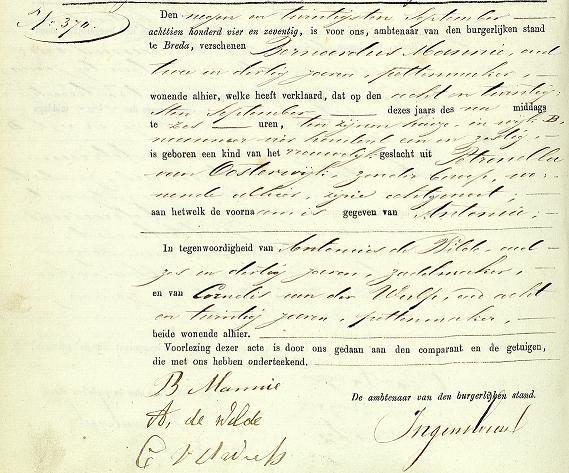 N: 370.
Den negen en twintigsten September
achttien honderd vier en zeventig, is voor ons, ambtenaar van den burgerlijken stand
te Breda, verschenen Bernardus Mannie, oud
twee en dertig jaren, pettenmaker,
wonende alhier, welke heeft verklaard, dat op den acht en twintig-
sten September dezes jaars des na middags
te zes uren, ten zijnen huize in wijk B.
nummer vier honderd een en zestig
is geboren een kind van het vrouwelijk geslacht uit Petronella
van Oosterwijk, zonder beroep, wo-
nende alhier, zijne echtgenoot,
aan hetwelk de voorna am is gegeven van Antonia,
In tegenwoordigheid van Antonius de Wilde, oud
zes en dertig jaren, zadelmaker,
en van Cornelis van der Wulp, oud acht
en twintig jaren, pettenmaker
beide wonende alhier.
Voorlezing dezer acte is door ons gedaan aan den comparant en de getuigen,
die met ons hebben onderteekend.
B Mannie
De ambtenaar van den burgerlijken stand.
A, de Wilde